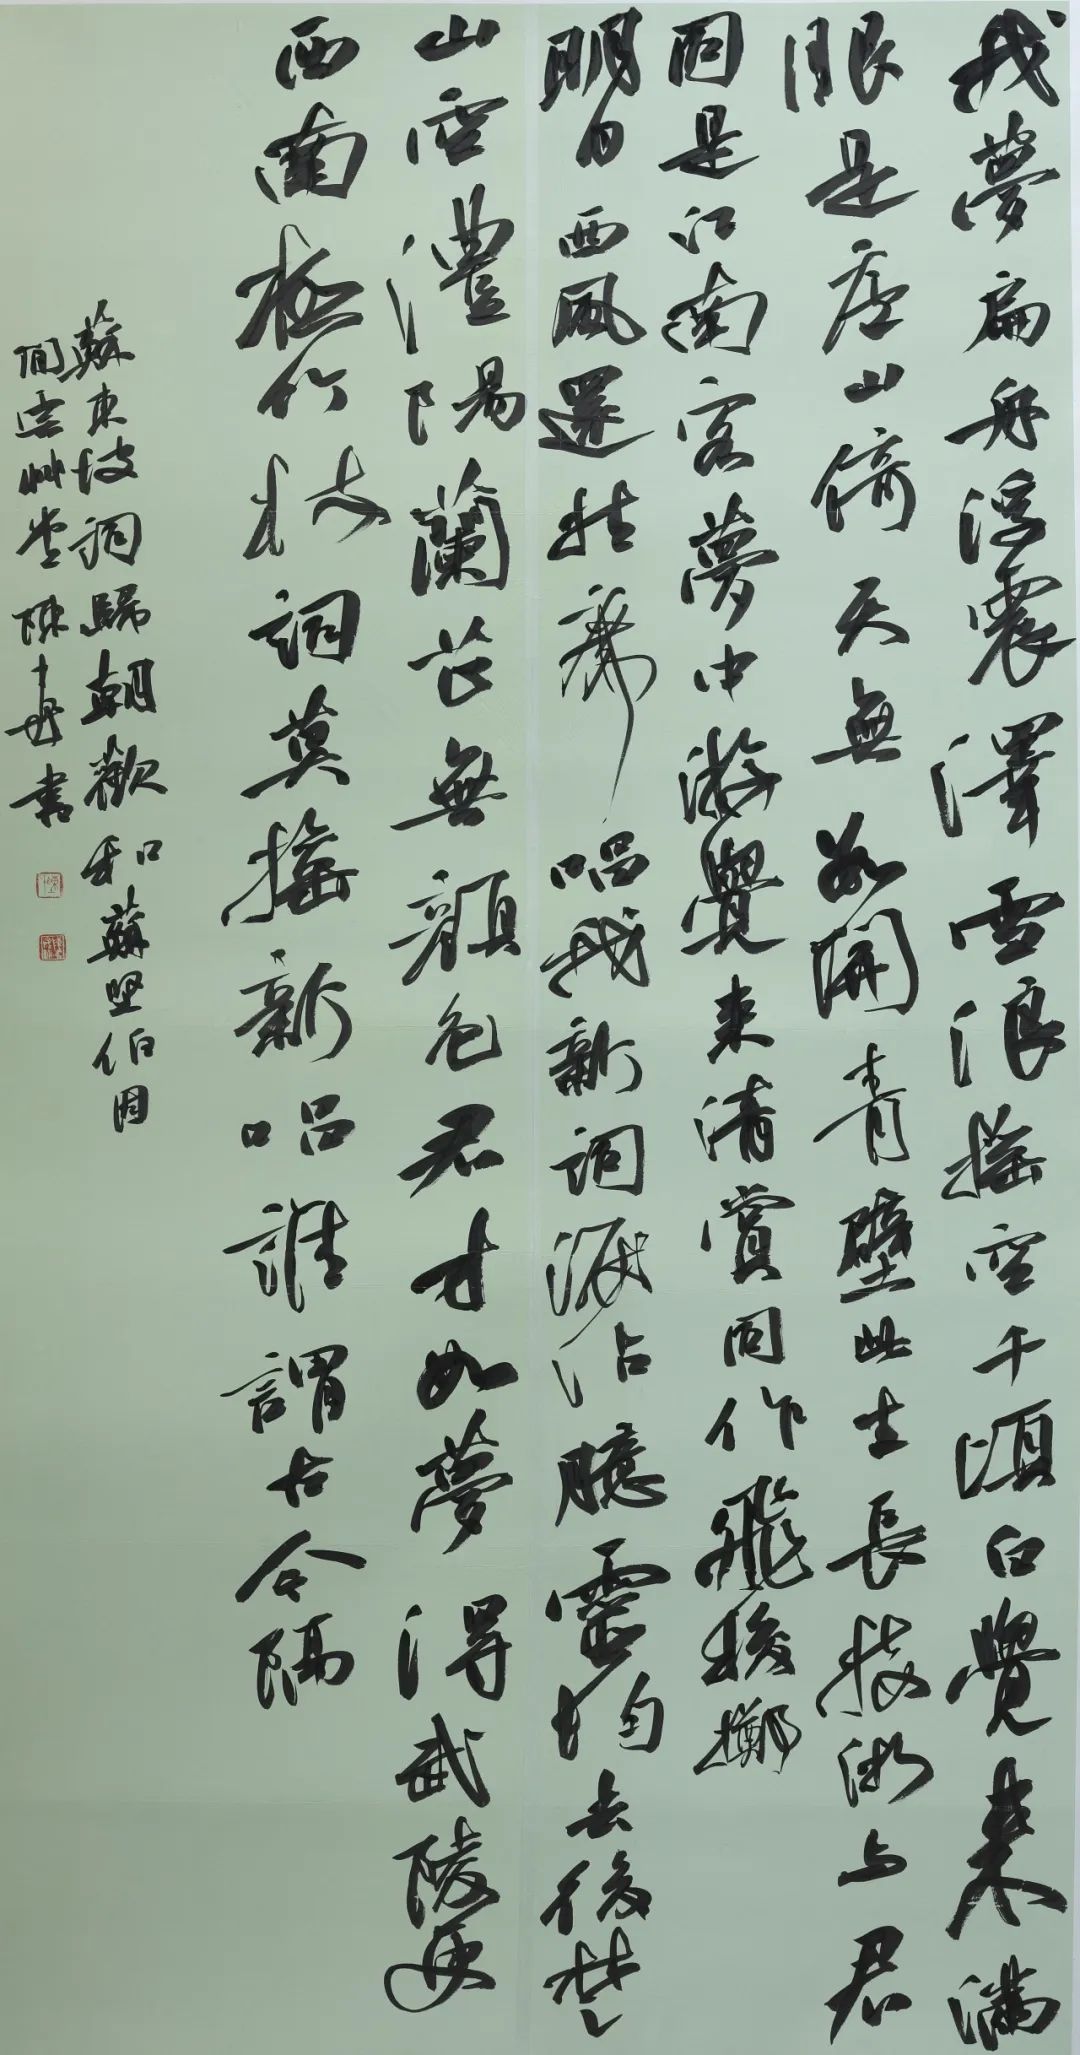 我夢扁舟浮震澤雪浪摇空千頃白覺来滿
眼是庐山倚天無数開青壁此生長接淅与君
同是江南客夢中游覺来清賞同作飛梭擲
明日西風還挂席唱我新詞淚沾臆靈均去後楚
山空澧陽蘭芷無顔色君才如夢得武陵更
西南極竹枝詞莫摇新唱誰謂古今隔
蘇東坡詞歸朝歡和蘇堅伯固
閒雲艸堂陳書